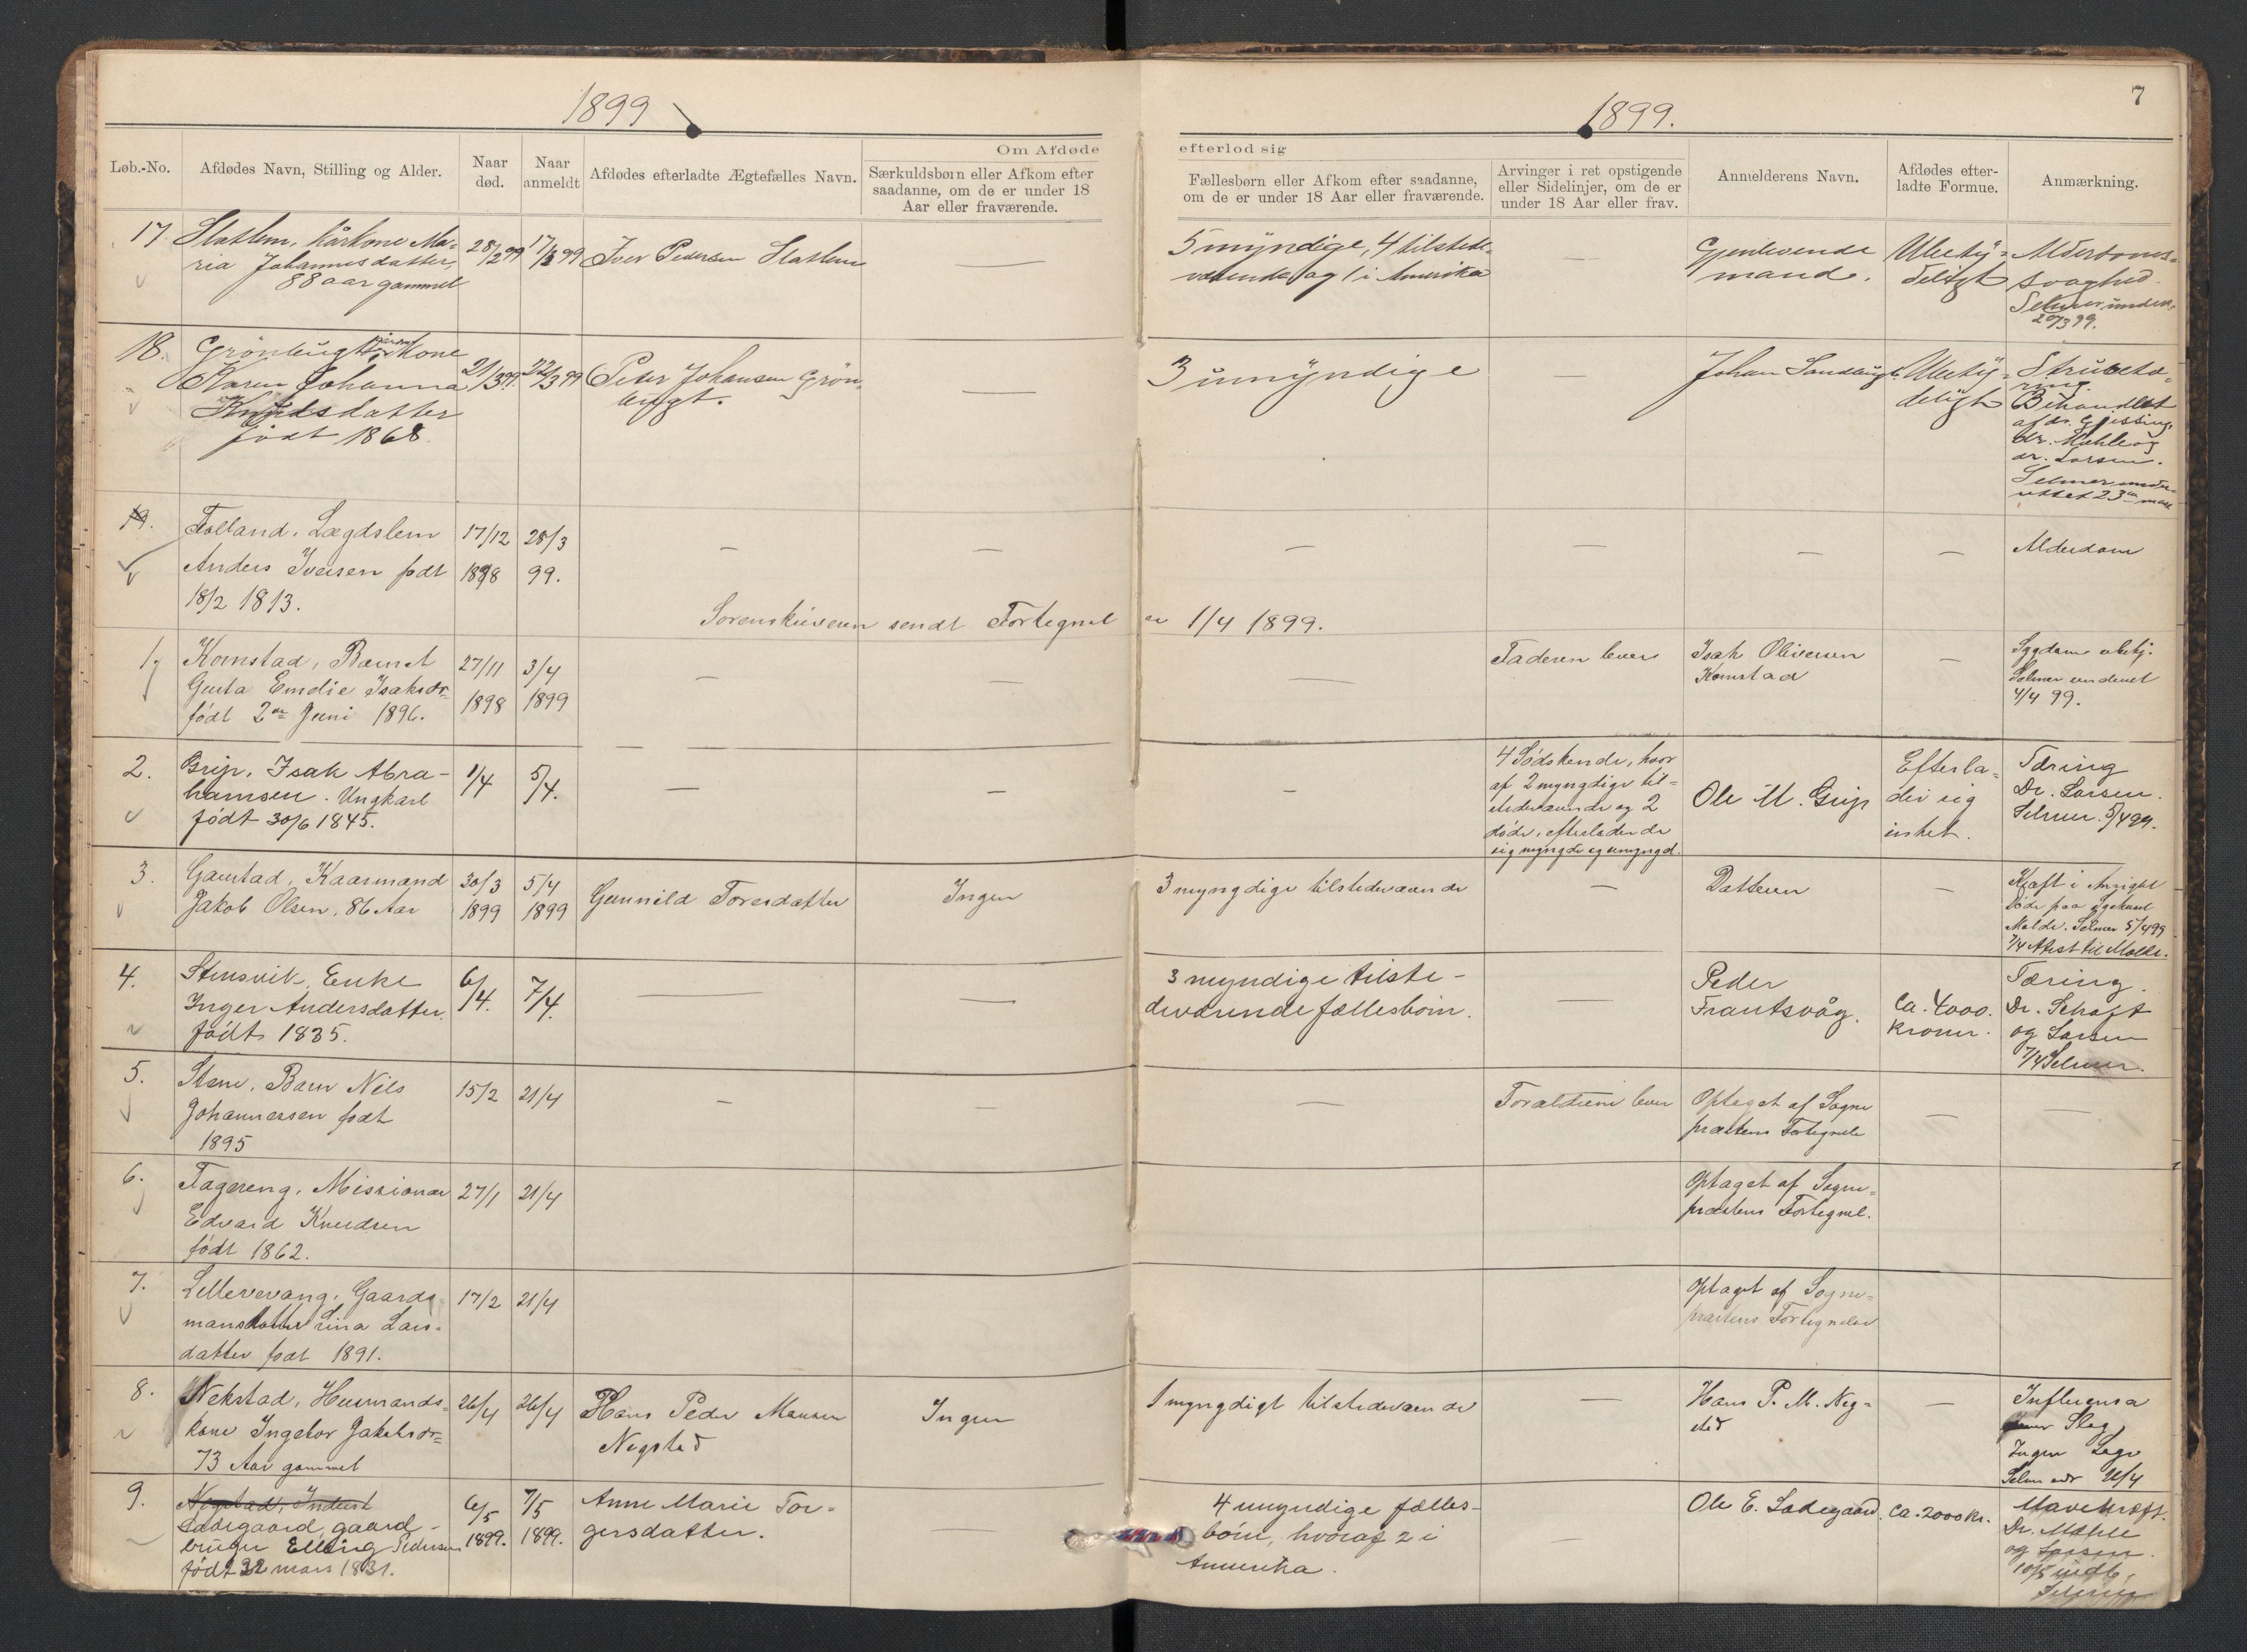 1899
1899.
7
Om Afdøde
efterlod sig
Løb.-No.
Afdødes Navn, Stilling og Alder.
Naar
død.
Naar
anmeldt
Afdødes efterladte Ægtefælles Navn.
Særkuldsbørn eller Afkom efter
saadanne, om de er under 18
Aar eller fraværende.
Fællesbørn eller Afkom efter saadanne,
om de er under 18 Aar eller fraværende.
Arvinger i ret opstigende
eller Sidelinjer, om de er
under 18 Aar eller frav.
Anmelderens Navn.
Afdødes efter-
ladte Formue.
Anmærkning.
17
Slatlem, kårkone Ma-
ria Johannesdatter,
88 aar gammel
28/2 99
17/3 99
Iver Pedersen Slatlem
—
5 myndige, 4 tilstede-
værende og 1 i Amerika
—
Gjenlevende
mand.
Ubety-
deligt
Alderdoms-
svaghed.
Selmer under.
20/3 99.
18.
Grönbugt, Kone
Karen Johanna
Knudsdatter
födt 1868.
21/3 99.
22/3 99
Peter Johansen Grön-
bugt.
—
3 umyndige
—
Johan Sandbugt.
Ubety-
deligt
Strubetæ-
ring.
Behandlet
af dr. Gjessing,
dr. Mæhle og
dr. Larsen.
Selmer unde-
rettet 23de mars
19.
Folland, Lægdslem
Anders Iversen født
18/2 1813.
17/12
1898
28/3
99.
—
—
—
—
—
—
Alderdom
Sorenskriveren sendt Fortegnelse 1/4 1899.
1
Kornstad, Barnet
Gusta Emelie Isaksdr
født 2den Juni 1896.
27/11
1898
3/4
1899
—
—
—
Faderen lever
Isak Oliversen
Kornstad
—
Sygdom ubekj.
Selmer underret
4/4 99.
2.
Grip, Isak Abra-
hamsen. Ungkarl
födt 30/6 1845.
1/4
5/4.
—
—
—
4 Södskende, hvor
af 2 myngdige til-
stedeværende og 2
døde, efterladende
sig myngde og umyngd.
Ole M. Grip
Efterla-
der sig
intet.
Tæring
Dr. Larsen.
Selmer. 5/4 99.
3.
Gaustad, Kaarmand
Jakob Olsen, 86 Aar
30/3
1899
5/4
1899
Gunnild Toresdatter
Ingen
3 myngdige tilstedeværende
—
Datteren
—
Kræft i Ansigtet
Døde paa Sygehuset
Molde. Selmer 5/4 99
7/4 Attest til Molde.
4.
Stensvik, Enke
Inger Andersdatter.
födt 1835.
6/4.
7/4.
—
—
3 myndige tilste-
deværende fællesbörn.
—
Peder
Frantsvåg.
Ca. 4000.
kroner.
Tæring.
Dr. Schaft
og Larsen
7/4 Selmer.
5.
Stene, Barn Nils
Johannessen født
1895
15/2
21/4
—
—
—
Forældrene lever
Optaget af Sogne
præstens Fortegnelse
—
—
6.
Fagereng, Missionær
Edvard Knudsen
født 1862.
27/1
21/4
Optaget af Sogne-
præstens Fortegnel.
7.
Lillevevang, Gaards-
mansdatter Lina Lars-
datter født 1891.
17/2
21/4
Optaget af Sogne-
præstens Fortegnelse
8.
Nekstad, Husmands-
kone Ingebor Jakobsdr=
73 Aar gammel
26/4
26/4
Hans Peder Monsen
Negsted
Ingen
1 myngdigt tilstedeværende
—
Hans P. M. Neg-
sted
—
Influensa
Slag
Ingen Læge
Selm udr 26/4
9.
Negstad, Inderst
Ladegaard, gaard-
bruger Elling Pedersen
födt 22 mars 1831.
6/5
1899.
7/5
1899.
Anne Marie Tor-
gersdatter.
4 umyndige fælles-
börn, hvoraf 2 i
Amerika.
—
Ole E. Ladegaard.
Ca. 2000 kr.
Mavekræft.
Dr. Mæhle
og Larsen.
10/5 indb.
Selmer